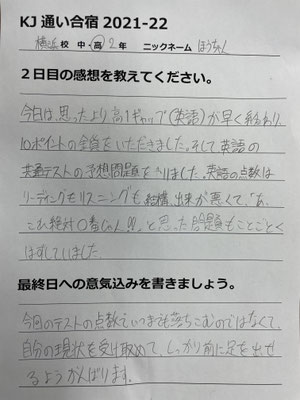 KJ 通い合宿 2021-22
横浜校 中・高 2年 ニックネーム ほうちゃん
２日目の感想を教えてください。
今日は思ったより高1ギャップ(英語)が早く終わり、
10ポイントの全員をいただきました。そして英語の
共通テストの予想問題をやりました。英語の点数は
リーディングもリスニングも結構、出来が悪くて、"あ、
これ絶対〇番じゃん!!"と思った問題もことごとく
はずしていました。
最終日への意気込みを書きましょう。
今回のテストの点数でいつまでも落ちこむのではなくて、
自分の現状を受け取めて、しっかり前に足を出せ
るようがんばります。